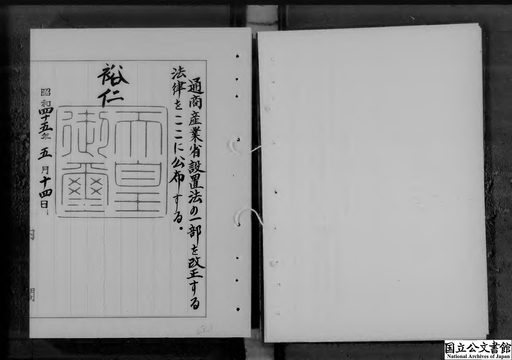 通商産業省設置法の一部を改正する
法律をここに公布する。
裕仁
天皇
御璽
昭和四十五年五月十四日
国立公文書館
National Archives of Japan